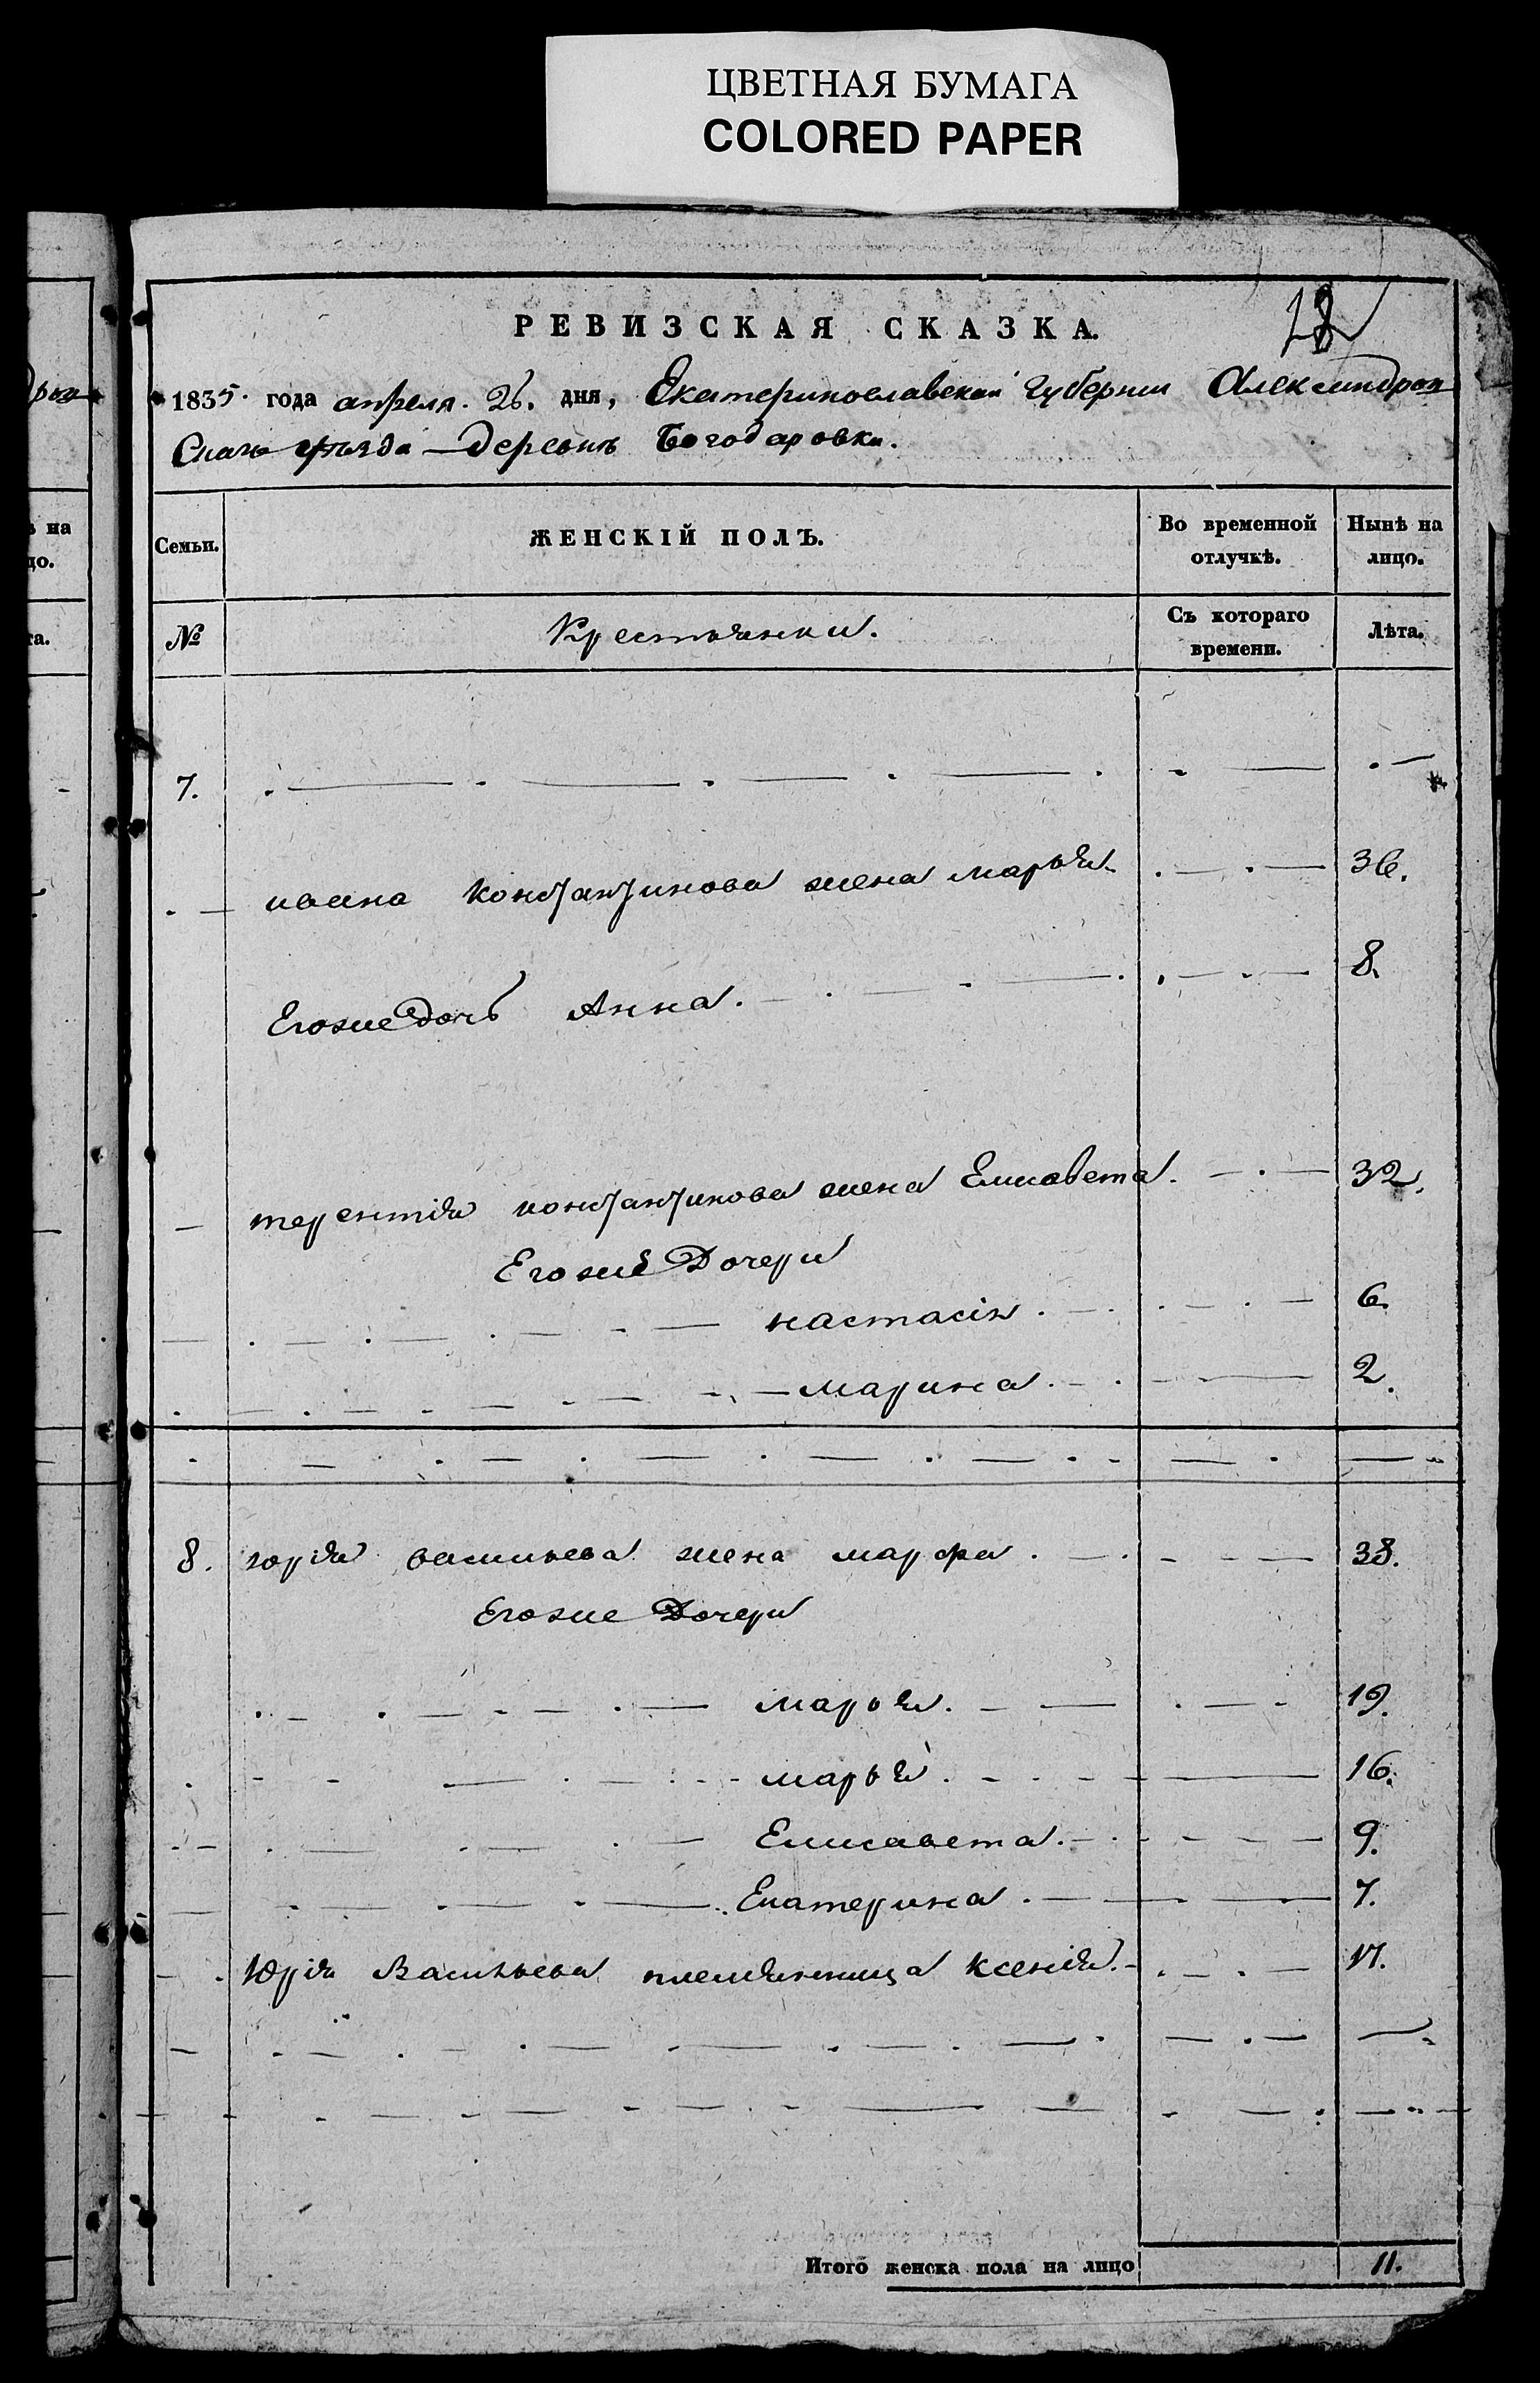 ЦВЕТНАЯ БУМАГА
COLORED PAPER
РЕВИЗСКАЯ СКАЗКА.
1835. года апреля. 26. дня, Екатеринославской Губернии Александров
Скаго уѣзда – Деревнѣ Богодаровки.
Семьи.
ЖЕНСКІЙ ПОЛЪ.
Во временной отлучкѣ.
Нынѣ на лицо.
№
Крестьянки.
Съ котораго времени.
Лѣта.
7.
ивана константинова жена марья 36.
Егоже дочь Анна. 8.
терентія константинова жена Елисавета. 32.
Егоже Дочери
настасія. 6.
марина. 2.
8. юрія васильева жена марфа. 38.
Егоже Дочери
марья. 19.
марья. 16.
Елисавета. 9.
Екатерина. 7.
Юрія Васильева племянница Ксенія. 17.
Итого женска пола на лицо 11.
на
цо.
та.